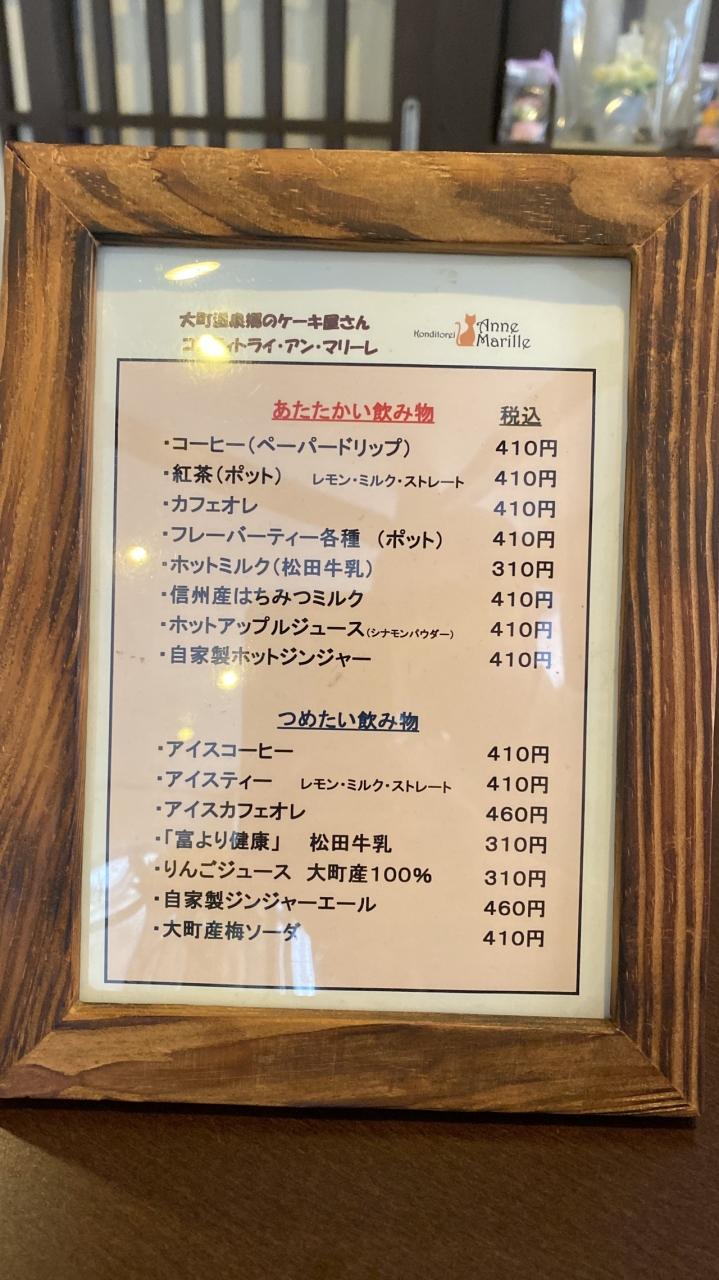 大町温泉郷のケーキ屋さん
コンディトライ・アン・マリーレ
Konditorei Anne Marille
あたたかい飲み物 税込
・コーヒー(ペーパードリップ) 410円
・紅茶(ポット) レモン・ミルク・ストレート 410円
・カフェオレ 410円
・フレーバーティー各種 (ポット) 410円
・ホットミルク(松田牛乳) 310円
・信州産はちみつミルク 410円
・ホットアップルジュース(シナモンパウダー) 410円
・自家製ホットジンジャー 410円
つめたい飲み物
・アイスコーヒー 410円
・アイスティー レモン・ミルク・ストレート 410円
・アイスカフェオレ 460円
・「富より健康」 松田牛乳 310円
・りんごジュース 大町産100% 310円
・自家製ジンジャーエール 460円
・大町産梅ソーダ 410円